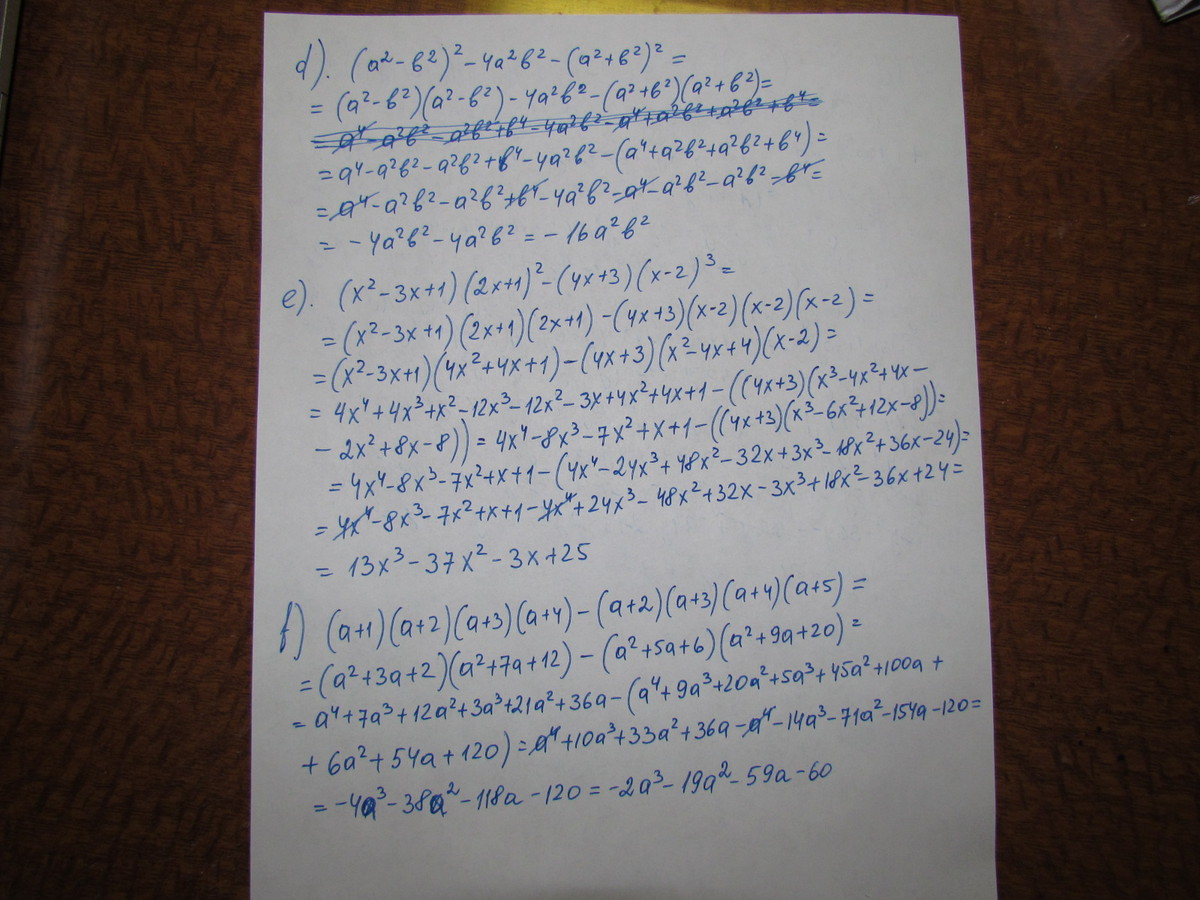 d). (a²-b²)²-4a²b²-(a²+b²)²=
=(a²-b²)(a²-b²)-4a²b²-(a²+b²)(a²+b²)=
=a⁴-a²b²-a²b²+b⁴-4a²b²-a⁴+a²b²+a²b²+b⁴=
=a⁴-a²b²-a²b²+b⁴-4a²b²-(a⁴+a²b²+a²b²+b⁴)=
=a⁴-a²b²-a²b²+b⁴-4a²b²-a⁴-a²b²-a²b²-b⁴=
= -4a²b²-4a²b²=-16a²b²
e). (x²-3x+1)(2x+1)²-(4x+3)(x-2)³=
=(x²-3x+1)(2x+1)(2x+1)-(4x+3)(x-2)(x-2)(x-2)=
=(x²-3x+1)(4x²+4x+1)-(4x+3)(x²-4x+4)(x-2)=
= 4x⁴+4x³+x²-12x³-12x²-3x+4x²+4x+1-((4x+3)(x³-4x²+4x-
-2x²+8x-8))=4x⁴-8x³-7x²+x+1-((4x+3)(x³-6x²+12x-8))=
=4x⁴-8x³-7x²+x+1-(4x⁴-24x³+48x²-32x+3x³-18x²+36x-24)=
=4x⁴-8x³-7x²+x+1-4x⁴+24x³-48x²+32x-3x³+18x²-36x+24=
= 13x³-37x²-3x+25
f) (a+1)(a+2)(a+3)(a+4)-(a+2)(a+3)(a+4)(a+5)=
=(a²+3a+2)(a²+7a+12)-(a²+5a+6)(a²+9a+20)=
=a⁴+7a³+12a²+3a³+21a²+36a-(a⁴+9a³+20a²+5a³+45a²+100a+
+6a²+54a+120)=a⁴+10a³+33a²+36a-a⁴-14a³-71a²-154a-120=
=-4a³-38a²-118a-120=-2a³-19a²-59a-60